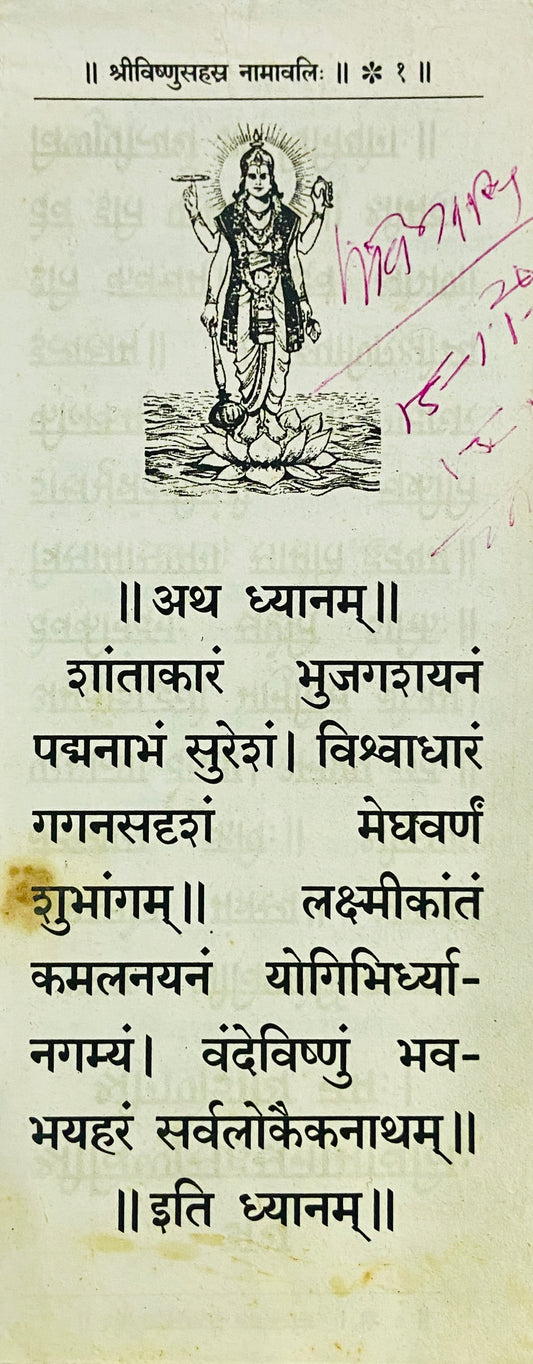 ॥ श्रीविष्णुसहस्र नामावलिः ॥ ✻ १ ॥
॥ अथ ध्यानम् ॥
शांताकारं भुजगशयनं
पद्मनाभं सुरेशं। विश्वाधारं
गगनसदृशं मेघवर्णं
शुभांगम् ॥ लक्ष्मीकांतं
कमलनयनं योगिभिर्ध्या-
नगम्यं। वंदेविष्णुं भव-
भयहरं सर्वलोकैकनाथम् ॥
॥ इति ध्यानम् ॥